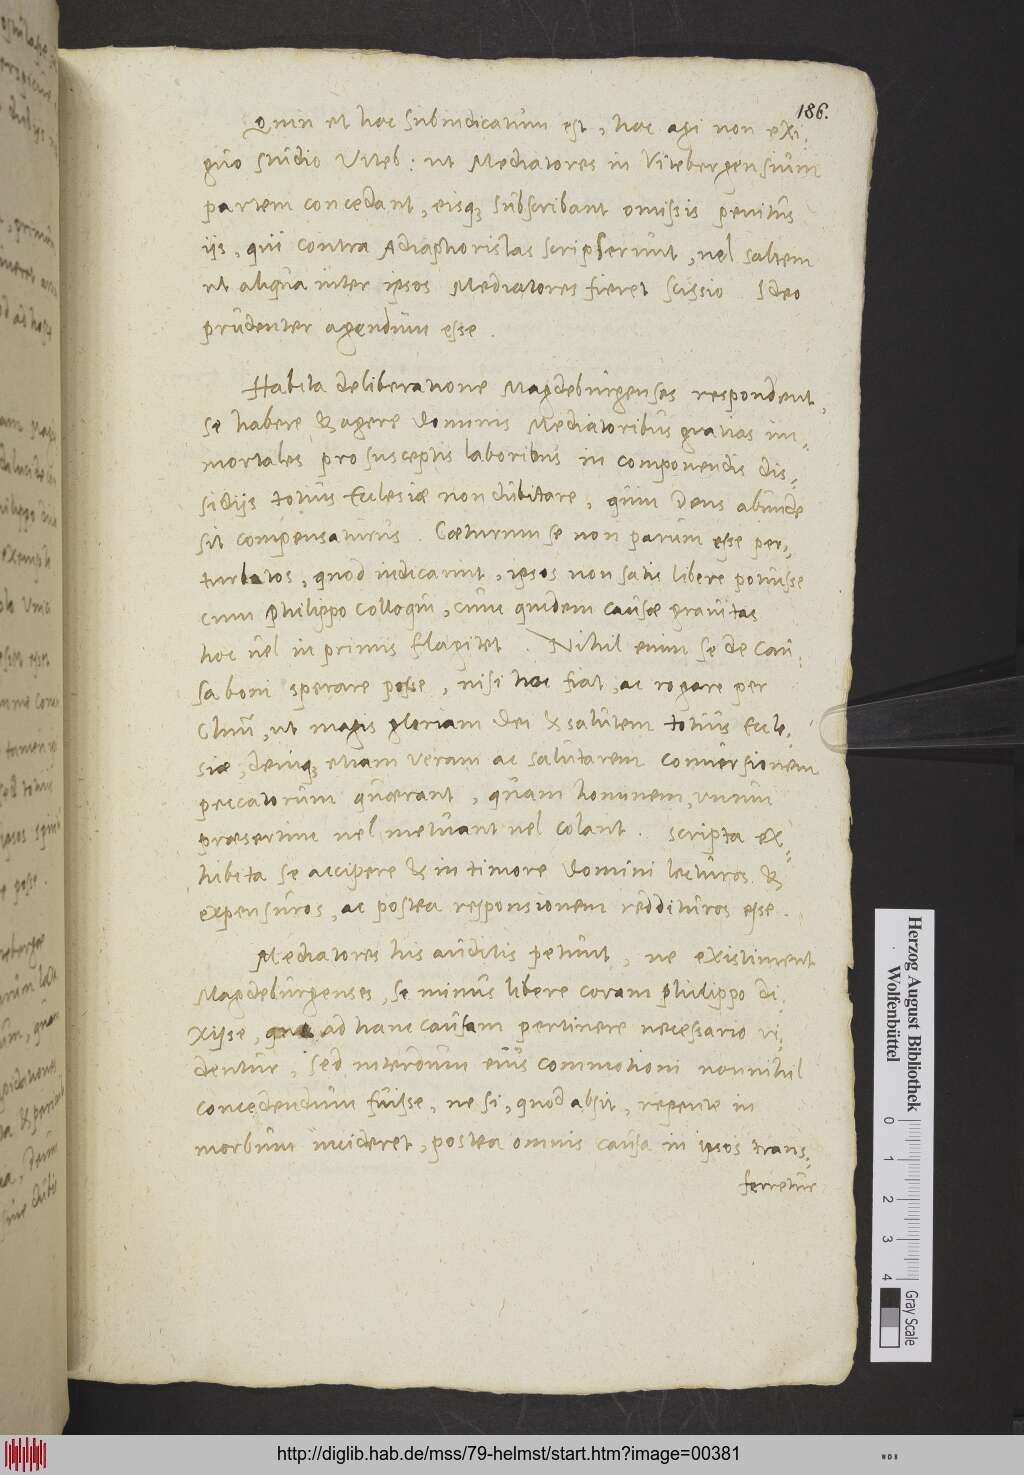 186.
Quin et hoc subindicatum est, hoc agi non exi-
guo studio Viteb: ut Mediatores in Vitebergensium
partem concedant, eisq; subscribant omissis penitus
ijs, qui contra Adiaphoristas scripserunt, uel saltem
ut aliqua inter ipsos Mediatores fieret scissio. Ideo
prudenter agendum esse.
Habita deliberatione Magdeburgenses respondent,
se habere & agere Dominis Mediatoribus gratias im-
mortales pro susceptis laboribus in componendis dis-
sidijs totius Ecclesiæ non dubitare, quin Deus abunde
sit compensaturus. Cæterum se non parum esse per-
turbatos, quod indicarint, ipsos non satis libere potuisse
cum Philippo colloqui, cum quidem causæ grauitas
hoc uel in primis flagitet. Nihil enim se de cau-
sa boni sperare posse, nisi hoc fiat, ac rogare per
Chrm̄, ut magis gloriam Dei & salutem totius Eccle-
siæ, deniq; etiam ueram ac salutarem conuersionem
peccatorum quærant, quam hominem unum
præsertim uel metuant uel colant. Scripta ex-
hibita se accipere & in timore Domini lecturos &
expensuros, ac postea responsionem reddituros esse.
Mediatores his auditis petunt, ne existiment
Magdeburgenses, se minus libere coram Philippo di-
xisse, quæ ad hanc causam pertinere necessario ui-
dentur, sed interdum eius commotioni nonnihil
concedendum fuisse, ne si, quod absit, repente in
morbum incideret, postea omnis causa in ipsos trans-
ferretur
Herzog August Bibliothek
Wolfenbüttel
0 1 2 3 4
Gray Scale
http://diglib.hab.de/mss/79-helmst/start.htm?image=00381